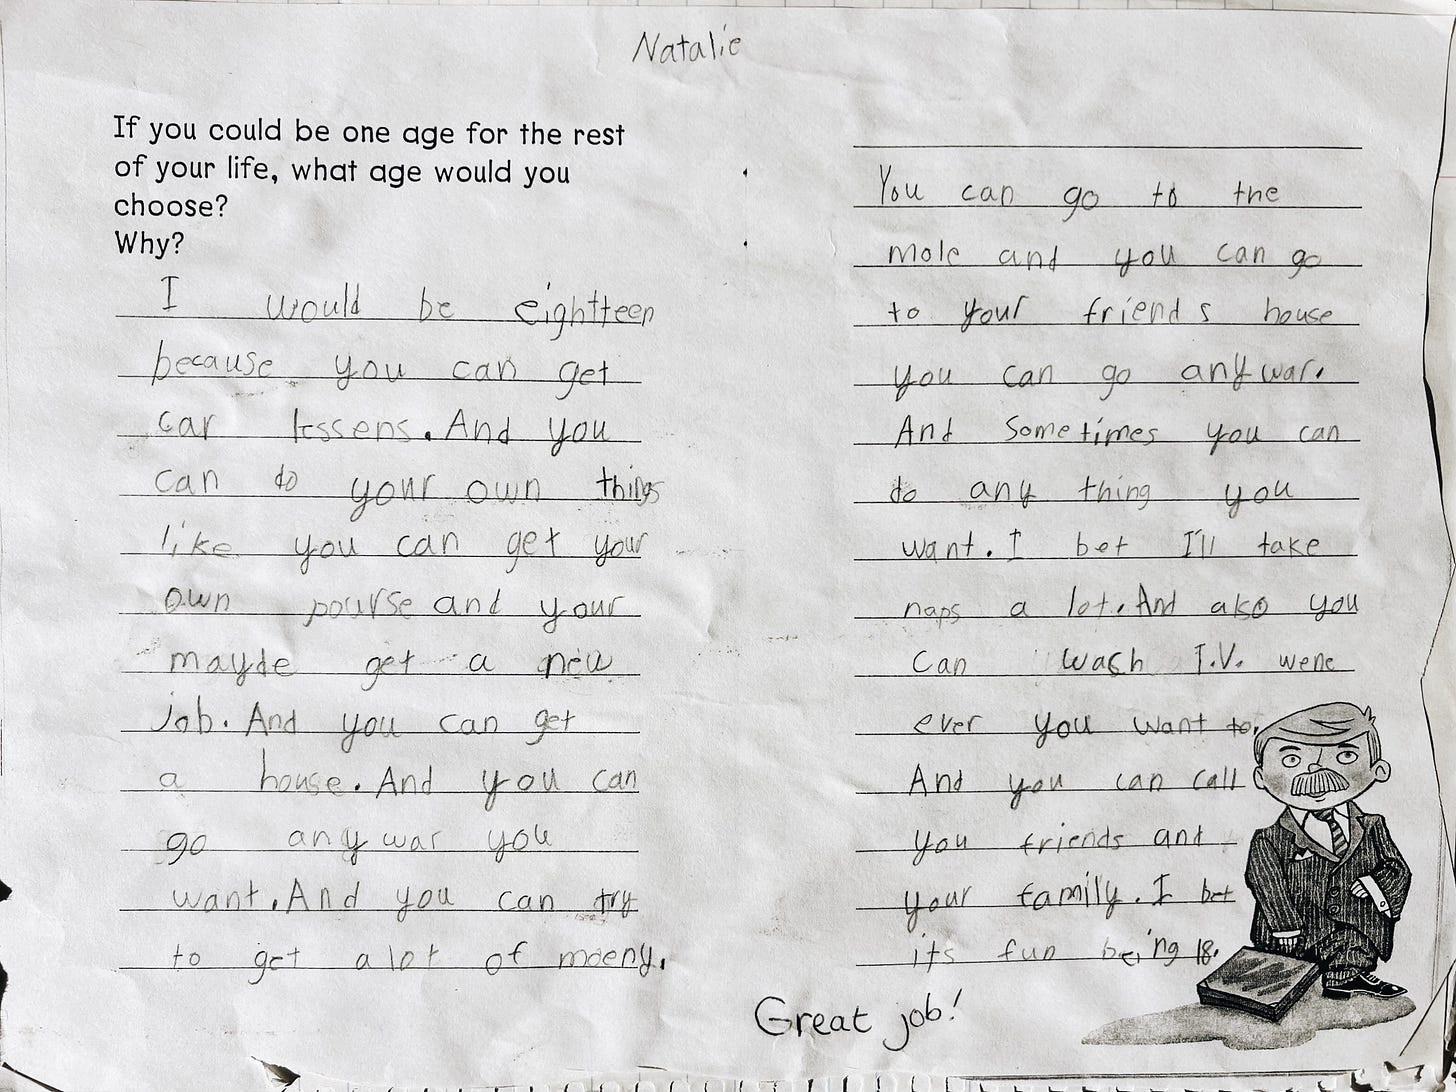 Natalie
If you could be one age for the rest
of your life, what age would you
choose?
Why?
I would be eightteen
because you can get
car lessens. And you
can do your own things
like you can get your
own pourse and your
mayde get a new
job. And you can get
a house. And you can
go any war you
want. And you can try
to get alot of moeny.
You can go to the
mole and you can go
to your friend s house
you can go any war.
And Sometimes you can
do any thing you
want. I bet I'll take
naps a lot. And also you
can wach T.V. wene
ever you want to.
And you can call
you friends and
your family. I bet
it's fun being 18.
Great job!